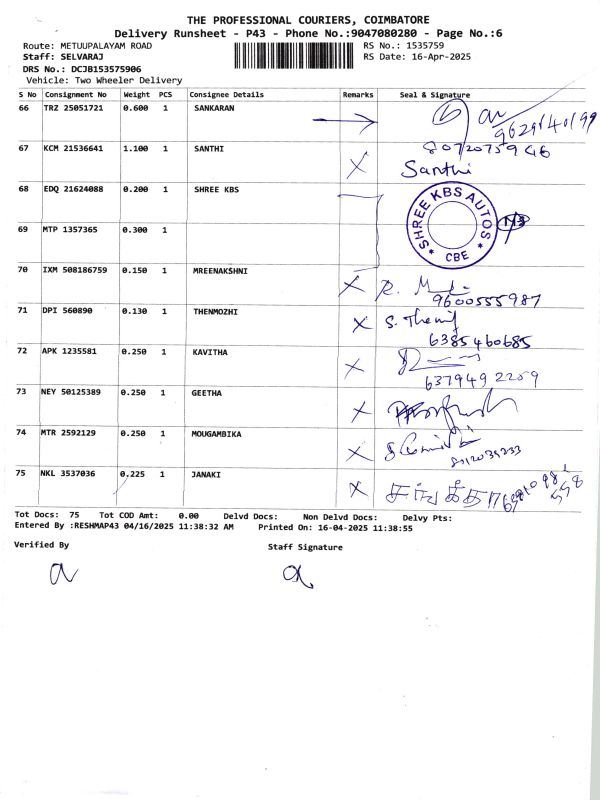 THE PROFESSIONAL COURIERS, COIMBATORE
Delivery Runsheet - P43 - Phone No.:9047080280 - Page No.:6
Route: METUUPALAYAM ROAD RS No.: 1535759
Staff: SELVARAJ RS Date: 16-Apr-2025
DRS No.: DCJB153575906
Vehicle: Two Wheeler Delivery
S No Consignment No Weight PCS Consignee Details Remarks Seal & Signature
66 TRZ 25051721 0.600 1 SANKARAN
67 KCM 21536641 1.100 1 SANTHI
8072075946
Santhi
68 EDQ 21624088 0.200 1 SHREE KBS
SHREE KBS AUTOS
* CBE *
69 MTP 1357365 0.300 1
70 IXM 508186759 0.150 1 MREENAKSHNI
9600555987
71 DPI 560890 0.130 1 THENMOZHI
6385460685
72 APK 1235581 0.250 1 KAVITHA
6379492259
73 NEY 50125389 0.250 1 GEETHA
74 MTR 2592129 0.250 1 MOUGAMBIKA
75 NKL 3537036 0.225 1 JANAKI
Tot Docs: 75 Tot COD Amt: 0.00 Delvd Docs: Non Delvd Docs: Delvy Pts:
Entered By :RESHMAP43 04/16/2025 11:38:32 AM Printed On: 16-04-2025 11:38:55
Verified By Staff Signature